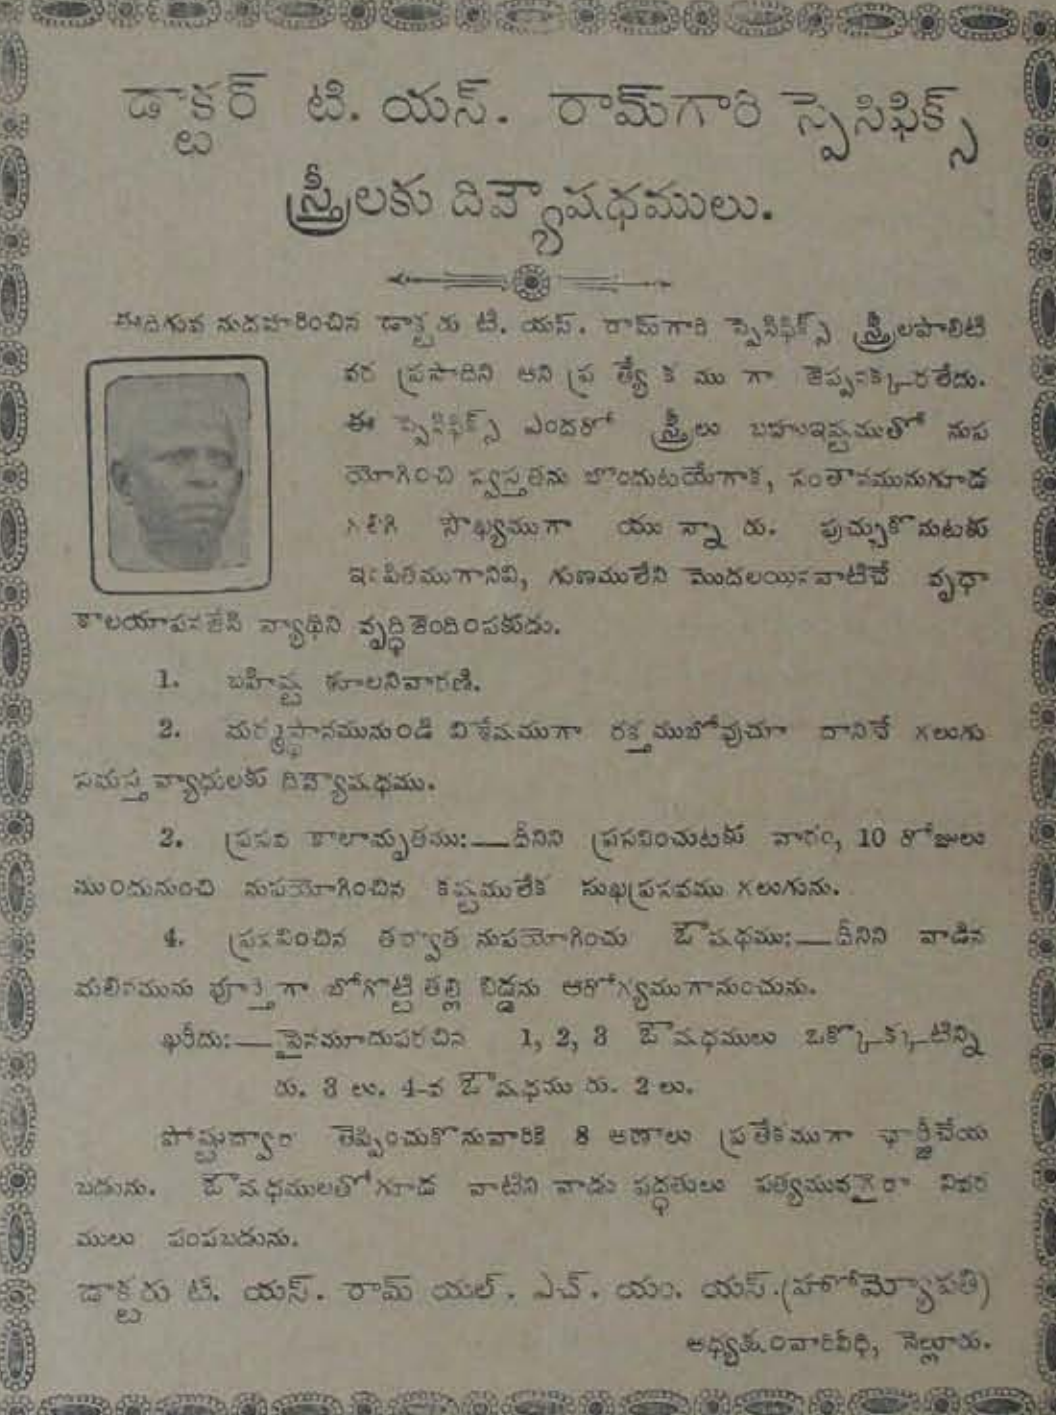 డాక్టర్ టి. యస్. రామ్‌గారి స్పెసిఫిక్స్
స్త్రీలకు దివ్యౌషధములు.
ఈదిగువ నుదహరించిన డాక్టరు టి. యస్. రామ్‌గారి స్పెసిఫిక్స్ స్త్రీలపాలిటి
వర ప్రసాదిని అని ప్ర త్యే క ము గా జెప్పనక్కరలేదు.
ఈ స్పెసిఫిక్స్ ఎందరో స్త్రీలు బహుఇష్టముతో నుప
యోగించి స్వస్తతను బొందుటయేగాక, సంతానమునుగూడ
గలిగి సౌఖ్యముగా యు న్నా రు. పుచ్చుకొనుటకు
ఇంపితముగానివి, గుణములేని మొదలయినవాటిచే వృధా
కాలయాపనజేసి వ్యాధిని వృద్ధిజెందింపకుడు.
1. బహిష్టు శూలనివారణి.
2. మర్మస్థానమునుండి విశేషముగా రక్తముబోవుచూ దానిచే గలుగు
సమస్త వ్యాధులకు దివ్యౌషధము.
3. ప్రసవ కాలామృతము:—దీనిని ప్రసవించుటకు వారం, 10 రోజులు
ముందునుంచి నుపయోగించిన కష్టములేక సుఖప్రసవము గలుగును.
4. ప్రసవించిన తర్వాత నుపయోగించు ఔషధము:—దీనిని వాడిన
మలినమును పూర్తిగా బోగొట్టి తల్లి బిడ్డను ఆరోగ్యముగానుంచును.
ఖరీదు:—పైనమూదుపరచిన 1, 2, 3 ఔషధములు ఒక్కొక్కటిన్ని
రు. 3 లు. 4-వ ఔషధము రు. 2 లు.
పోష్టుద్వారా తెప్పించుకొనువారికి 8 అణాలు ప్రతేకముగా ఛార్జీచేయ
బడును. ఔషధములతోగూడ వాటిని వాడు పద్ధతులు పత్యమువగైరా వివర
ములు పంపబడును.
డాక్టరు టి. యస్. రామ్ యల్. ఎచ్. యం. యస్.(హోమ్యోపతి)
నెల్లూరు.